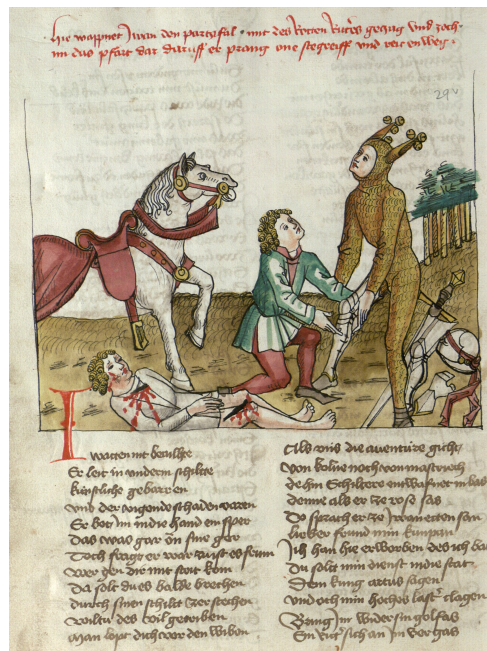 Hie wappnet Jwan den partzifal · mit des Rotten Ritters gezug vnd zoch
im das pfärt dar daruff er sprang one stegreiff vnd reit enweg ·
29v
I
Er leit in vndern schilte
künstliche gebarren
vnd der vigende schaden varen
Er bot im in die hand ein sper
Das was gar ön sine ger
Doch fragt er war zu ist es frum
Wer gen dir mit strit kom
Da solt du es balde brechen
durch sinen schilt zer stechen
wiltu des vil getriben
Man lopt dich vor den wiben
Als vns die auentüre gicht
von kölne noch von mastricht
dehein Schiltere entwarffet in bas
denne als er ze ross sas
Do sprach er ze Jwanetten san
lieber fründ min kumpan
Jch han hie erworben des ich bat
Du solt min dienst in die stat
Dem kung artus sagen
vnd och min hochos last' clagen
Bring im wider sin golfas
Ein ritt' sich an vergas